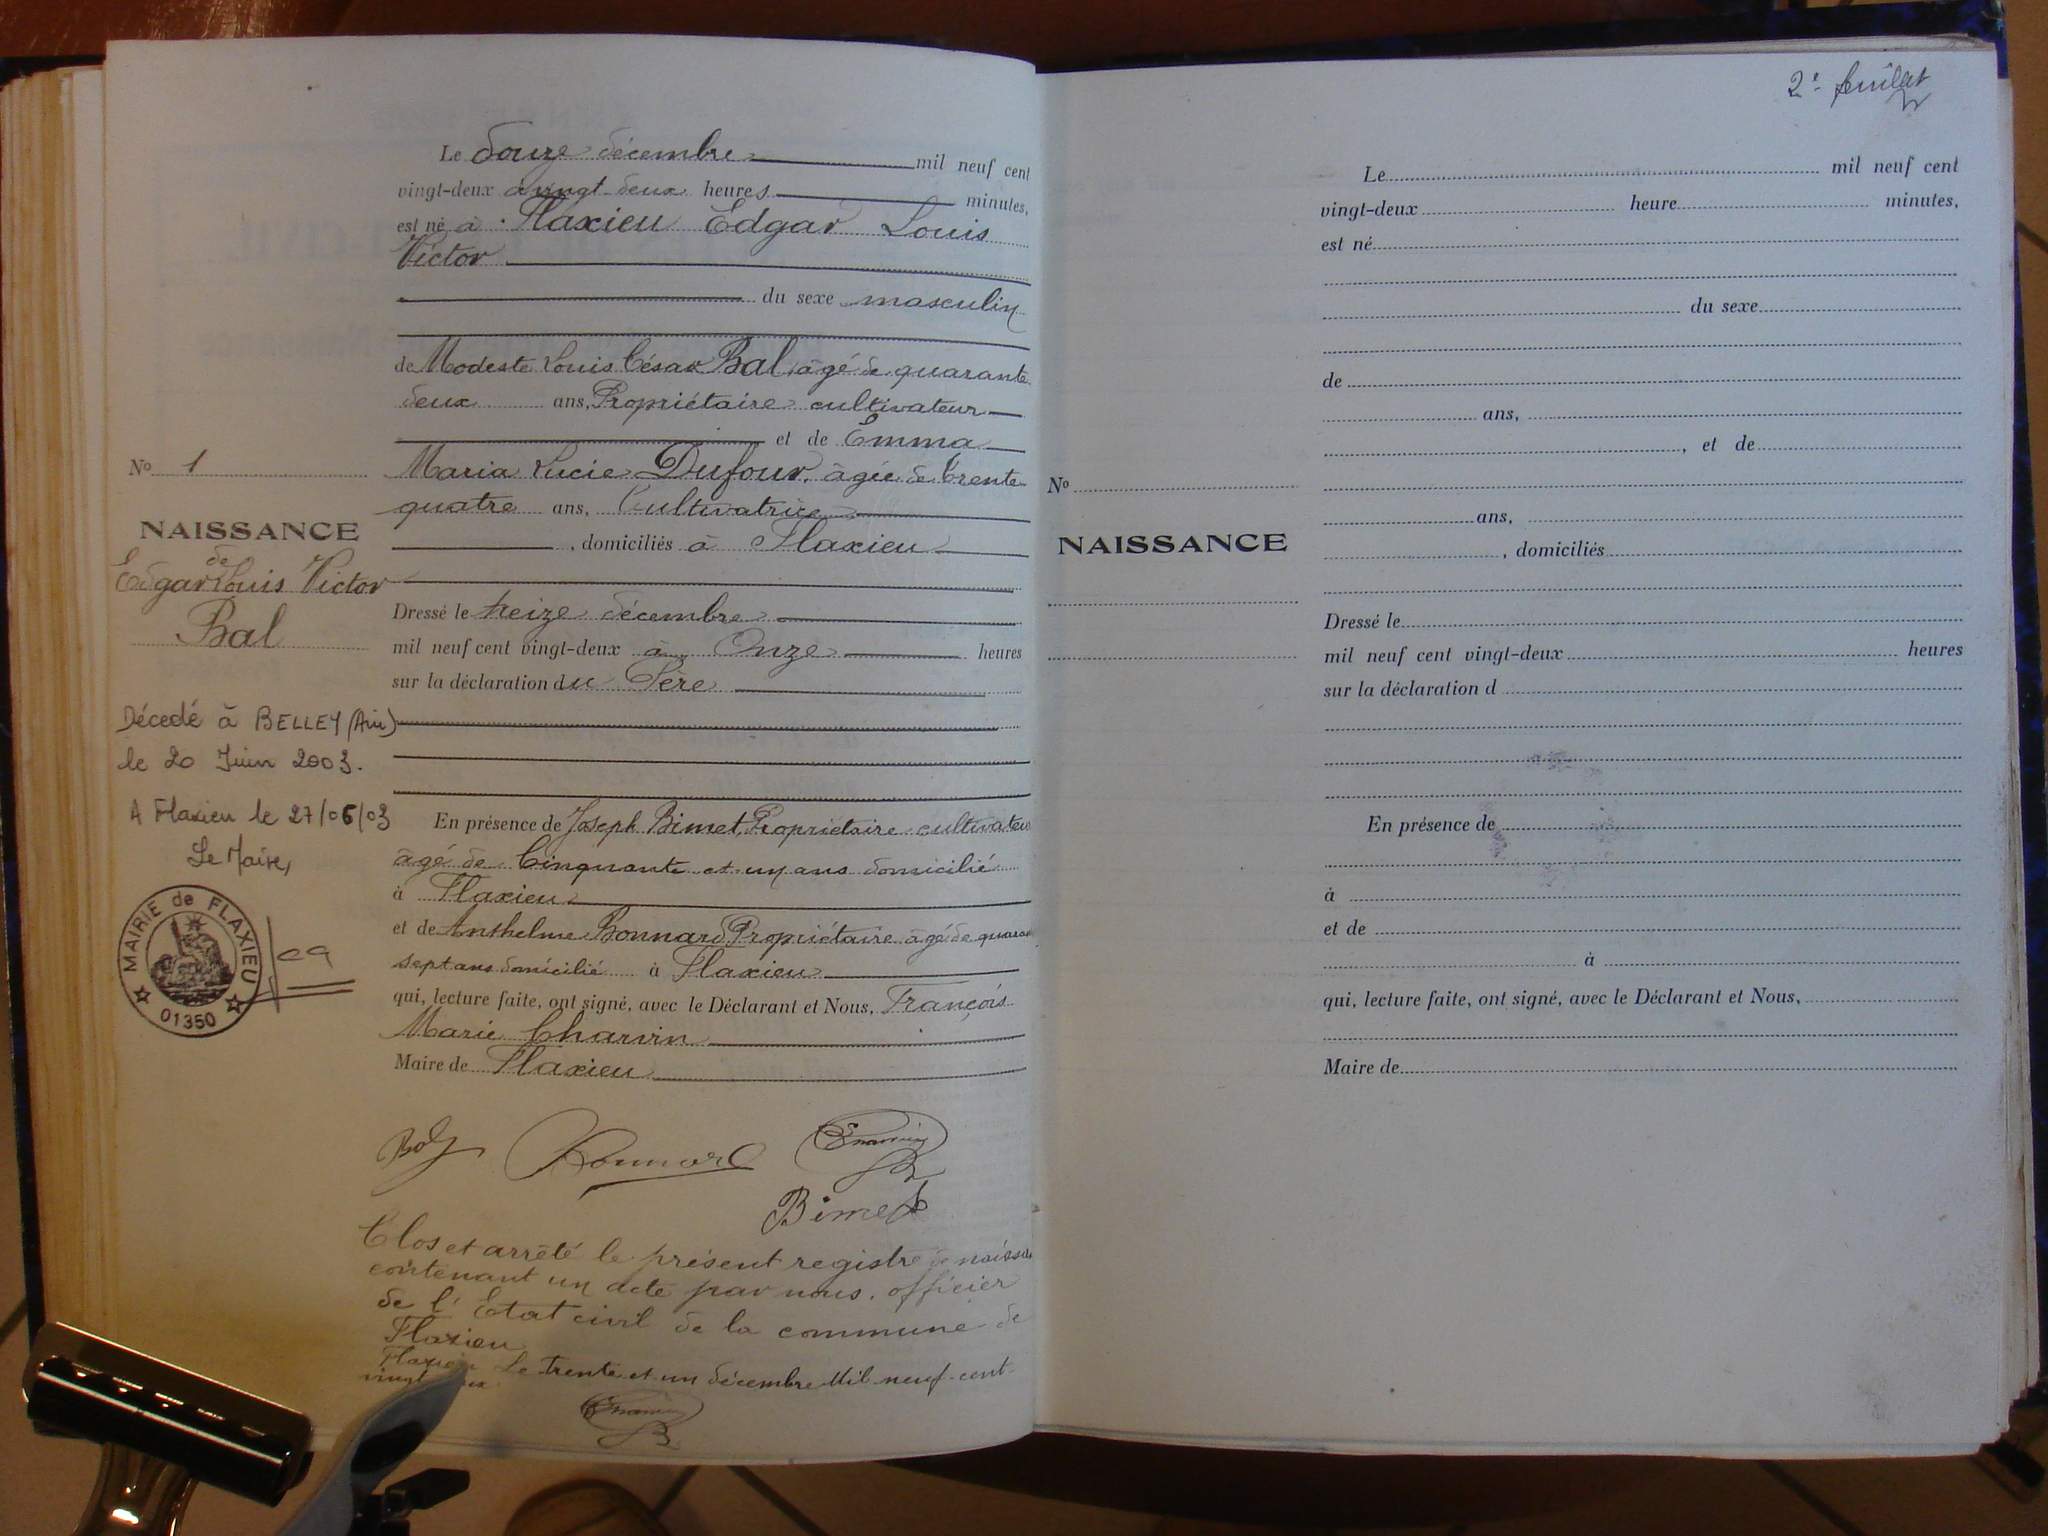 Le douze décembre mil neuf cent
vingt-deux à vingt deux heures minutes,
est né à Flaxieu Edgar Louis
Victor
du sexe masculin
de Modeste Louis César Bal, âgé de quarante
deux ans, Propriétaire cultivateur
et de Emma
Maria Lucie Dufour, âgée de trente
quatre ans, Cultivatrice
, domiciliés à Flaxieu
Dressé le treize décembre
mil neuf cent vingt-deux à Onze heures
sur la déclaration du Père
En présence de Joseph Bimet, Propriétaire cultivateu
âgé de Cinquante et un ans domicilié
à Flaxieu
et de Anthelme Bonnard, Propriétaire âgé de quaran
sept ans domicilié à Flaxieu
qui, lecture faite, ont signé, avec le Déclarant et Nous, François
Marie Charvin
Maire de Flaxieu
Bal Bonnard Charvin
Bimet
Clos et arrêté le présent registre de naissa
contenant un acte par nous, officier
de l'Etat civil de la commune de
Flaxieu
Flaxieu Le trente et un décembre Mil neuf cent
vingt
Charvin
No 1
NAISSANCE
de
Edgar Louis Victor
Bal
Décedé à BELLEY (Ain)
le 20 Juin 2003.
A Flaxieu le 27/06/03
Le Maire,
MAIRIE de FLAXIEU
01350
2e feuillet
Le mil neuf cent
vingt-deux heure minutes,
est né
du sexe
de
ans,
, et de
No
ans,
NAISSANCE
, domiciliés
Dressé le
mil neuf cent vingt-deux heures
sur la déclaration d
En présence de
à
et de
à
qui, lecture faite, ont signé, avec le Déclarant et Nous,
Maire de